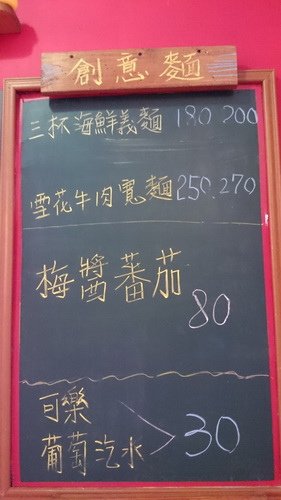 創意麵
三杯海鮮義麵 180.200
雪花牛肉寬麵 250.270
梅醬蕃茄 80
可樂
葡萄汽水 > 30